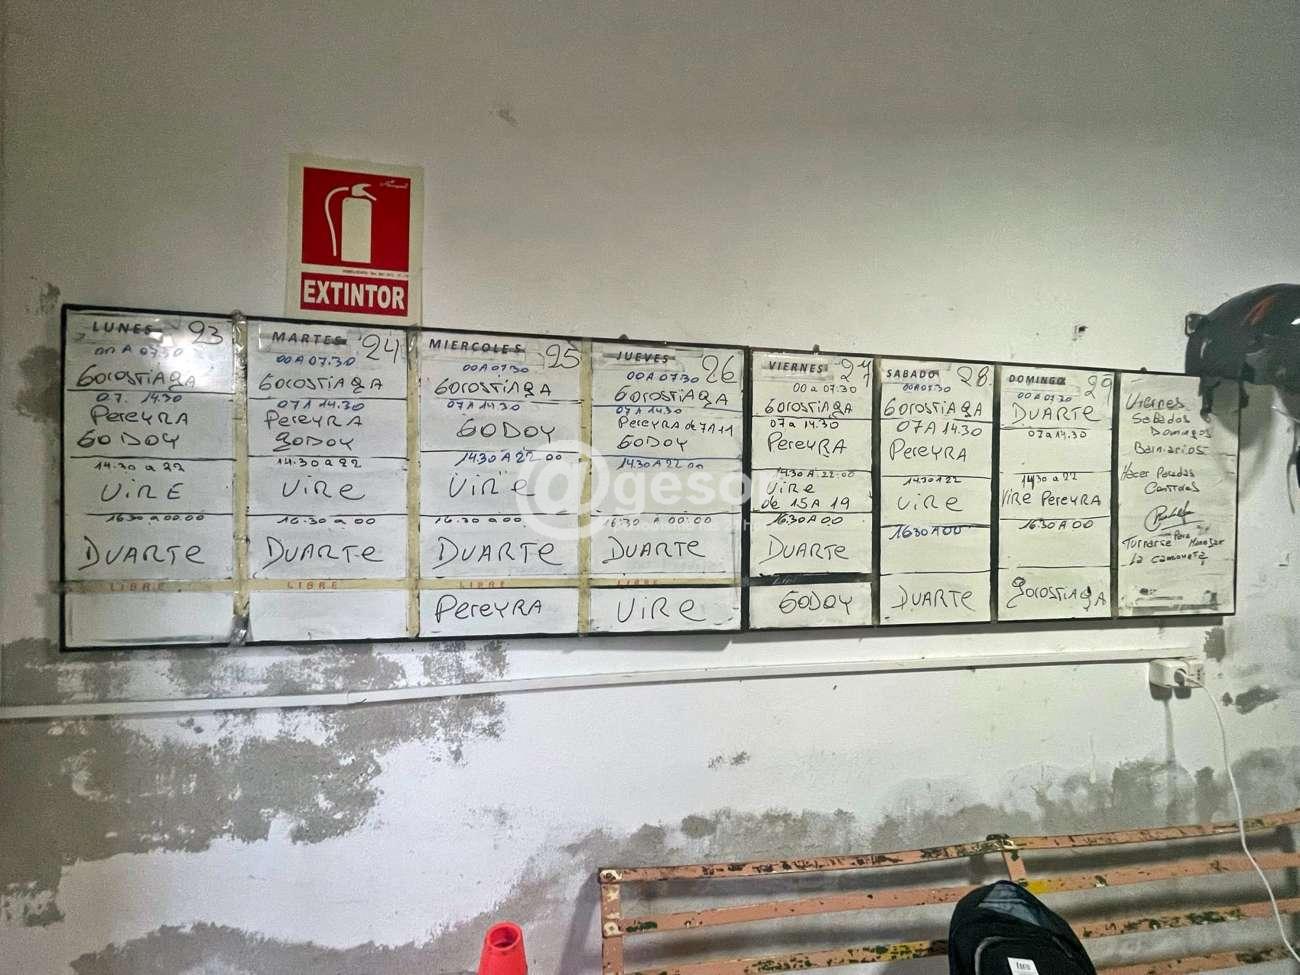 EXTINTOR
LUNES 23
00 A 07.30
GOROSTIAGA
07. 14.30
PEREYRA
GODOY
14.30 a 22
VIRE
16.30 a 00.00
DUARTE
LIBRE
MARTES 24
00 A 07.30
GOROSTIAGA
07 A 14.30
PEREYRA
GODOY
14.30 a 22
VIRE
16.30 a 00
DUARTE
LIBRE
MIERCOLES 25
00 A 07.30
GOROSTIAGA
07 A 14.30
GODOY
14.30 A 22.00
VIRE
16.30 a 00.
DUARTE
LIBRE
PEREYRA
JUEVES 26
00 A 07.30
GOROSTIAGA
07 A 14.30
PEREYRA de 7 A 11
GODOY
14.30 A 22.00
16:30 A 00:00
DUARTE
LIBRE
VIRE
VIERNES 27
00 a 07.30
GOROSTIAGA
07 a 14.30
PEREYRA
14.30 A 22.00
VIRE
de 15 A 19
16.30 A 00
DUARTE
GODOY
SABADO 28
00 A 07.30
GOROSTIAGA
07 A 14.30
PEREYRA
14.30 22
VIRE
1630 A 00
DUARTE
DOMINGO 29
00 A 07.30
DUARTE
07 a 14.30
1430 a 22
VIRE PEREYRA
16.30 A 00
GOROSTIAGA
Viernes
Sabados
Domingos
Hacer Paradas
Controles
Turnarse Para Manejar
La camioneta
@gesor